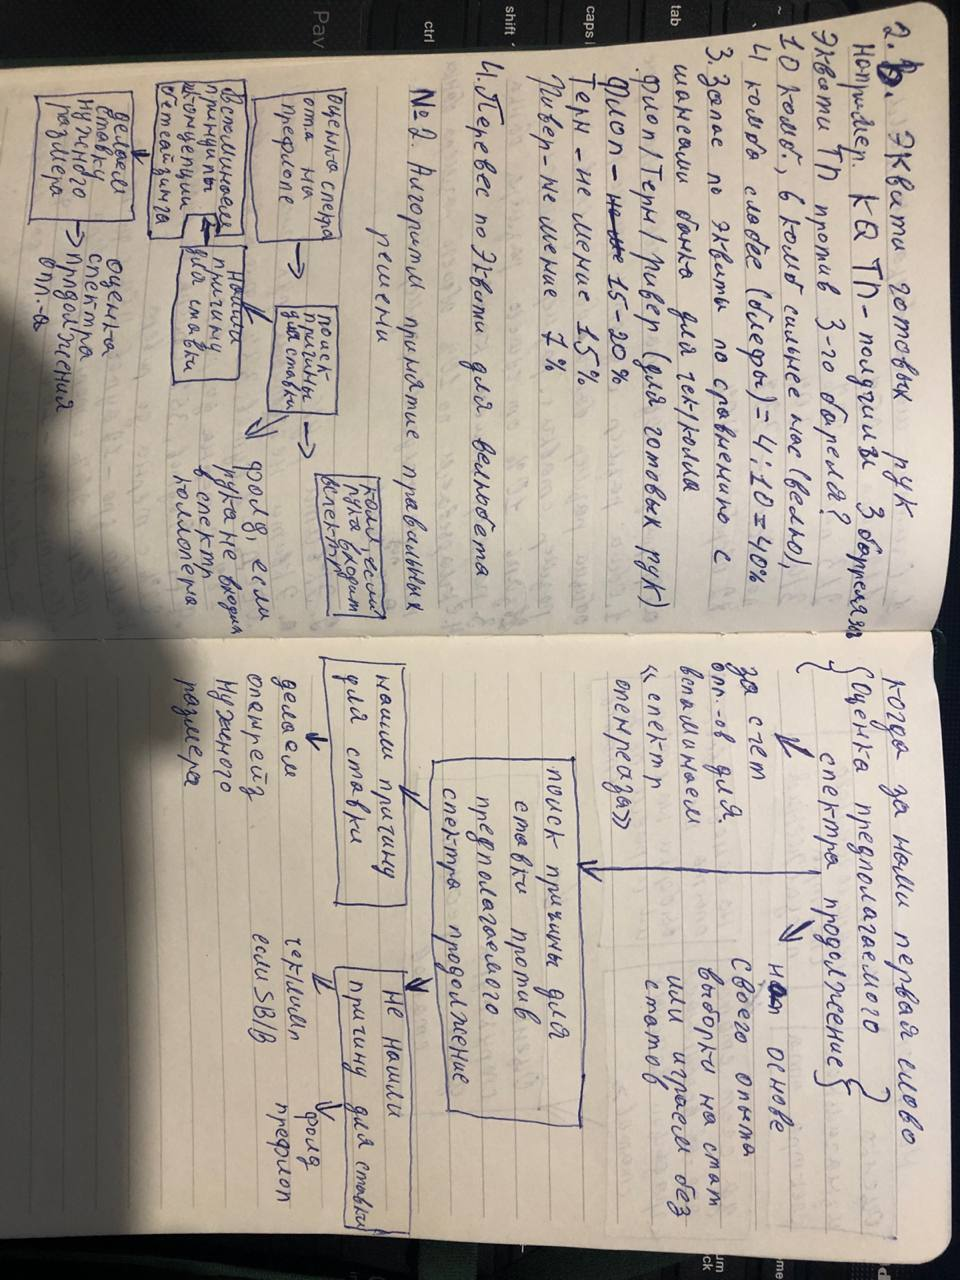 2.6. Эквити готовых рук
Например, KQ ТП - получили 3 баррелях
Эквити ТП против 3-го бареля?
10 комб., 6 комб сильнее нас (велью),
4 комбо слабее (блефы) = 4:10=40%
3. Запас по эквити по сравнению с
шансами банка для чек/колла
флоп/терн/ривер (для готовых рук)
Флоп - 15-20%
Терн - не менее 15%
Ривер - не менее 7%
4. Перевес по Эквити для вельюбета
№2. Алгоритм принятие правильных
решени
Оценка спектра
опа на
префлопе
поиск
причины
для ставки
колл, если
рука входит
в спектр
фолд, если
рука не входит
в спектр
коллопена
Нашли
причину
для ставки
Вспоминаем
принципы
концепции
бетсайзинга
делаем
ставку
нужного
размера
оценка
спектра
продолжения
опп-а
когда за нами первая слово
{Оценка предполагаемого
спектра продолжение}
за счет
опп-ов для
вспоминаем
«спектр
опенрейза»
на основе
своего опыта
выборки на стат
или играем без
статов
поиск причины для
ставки против
предполагаемого
спектра продолжение
нашли причину
для ставки
делаем
опанрейз
нужного
размера
Не нашли
причину для ставки
чек/лимп
если SB/B
фолд
префлоп
Pav
ctrl
shift
caps
tab
~